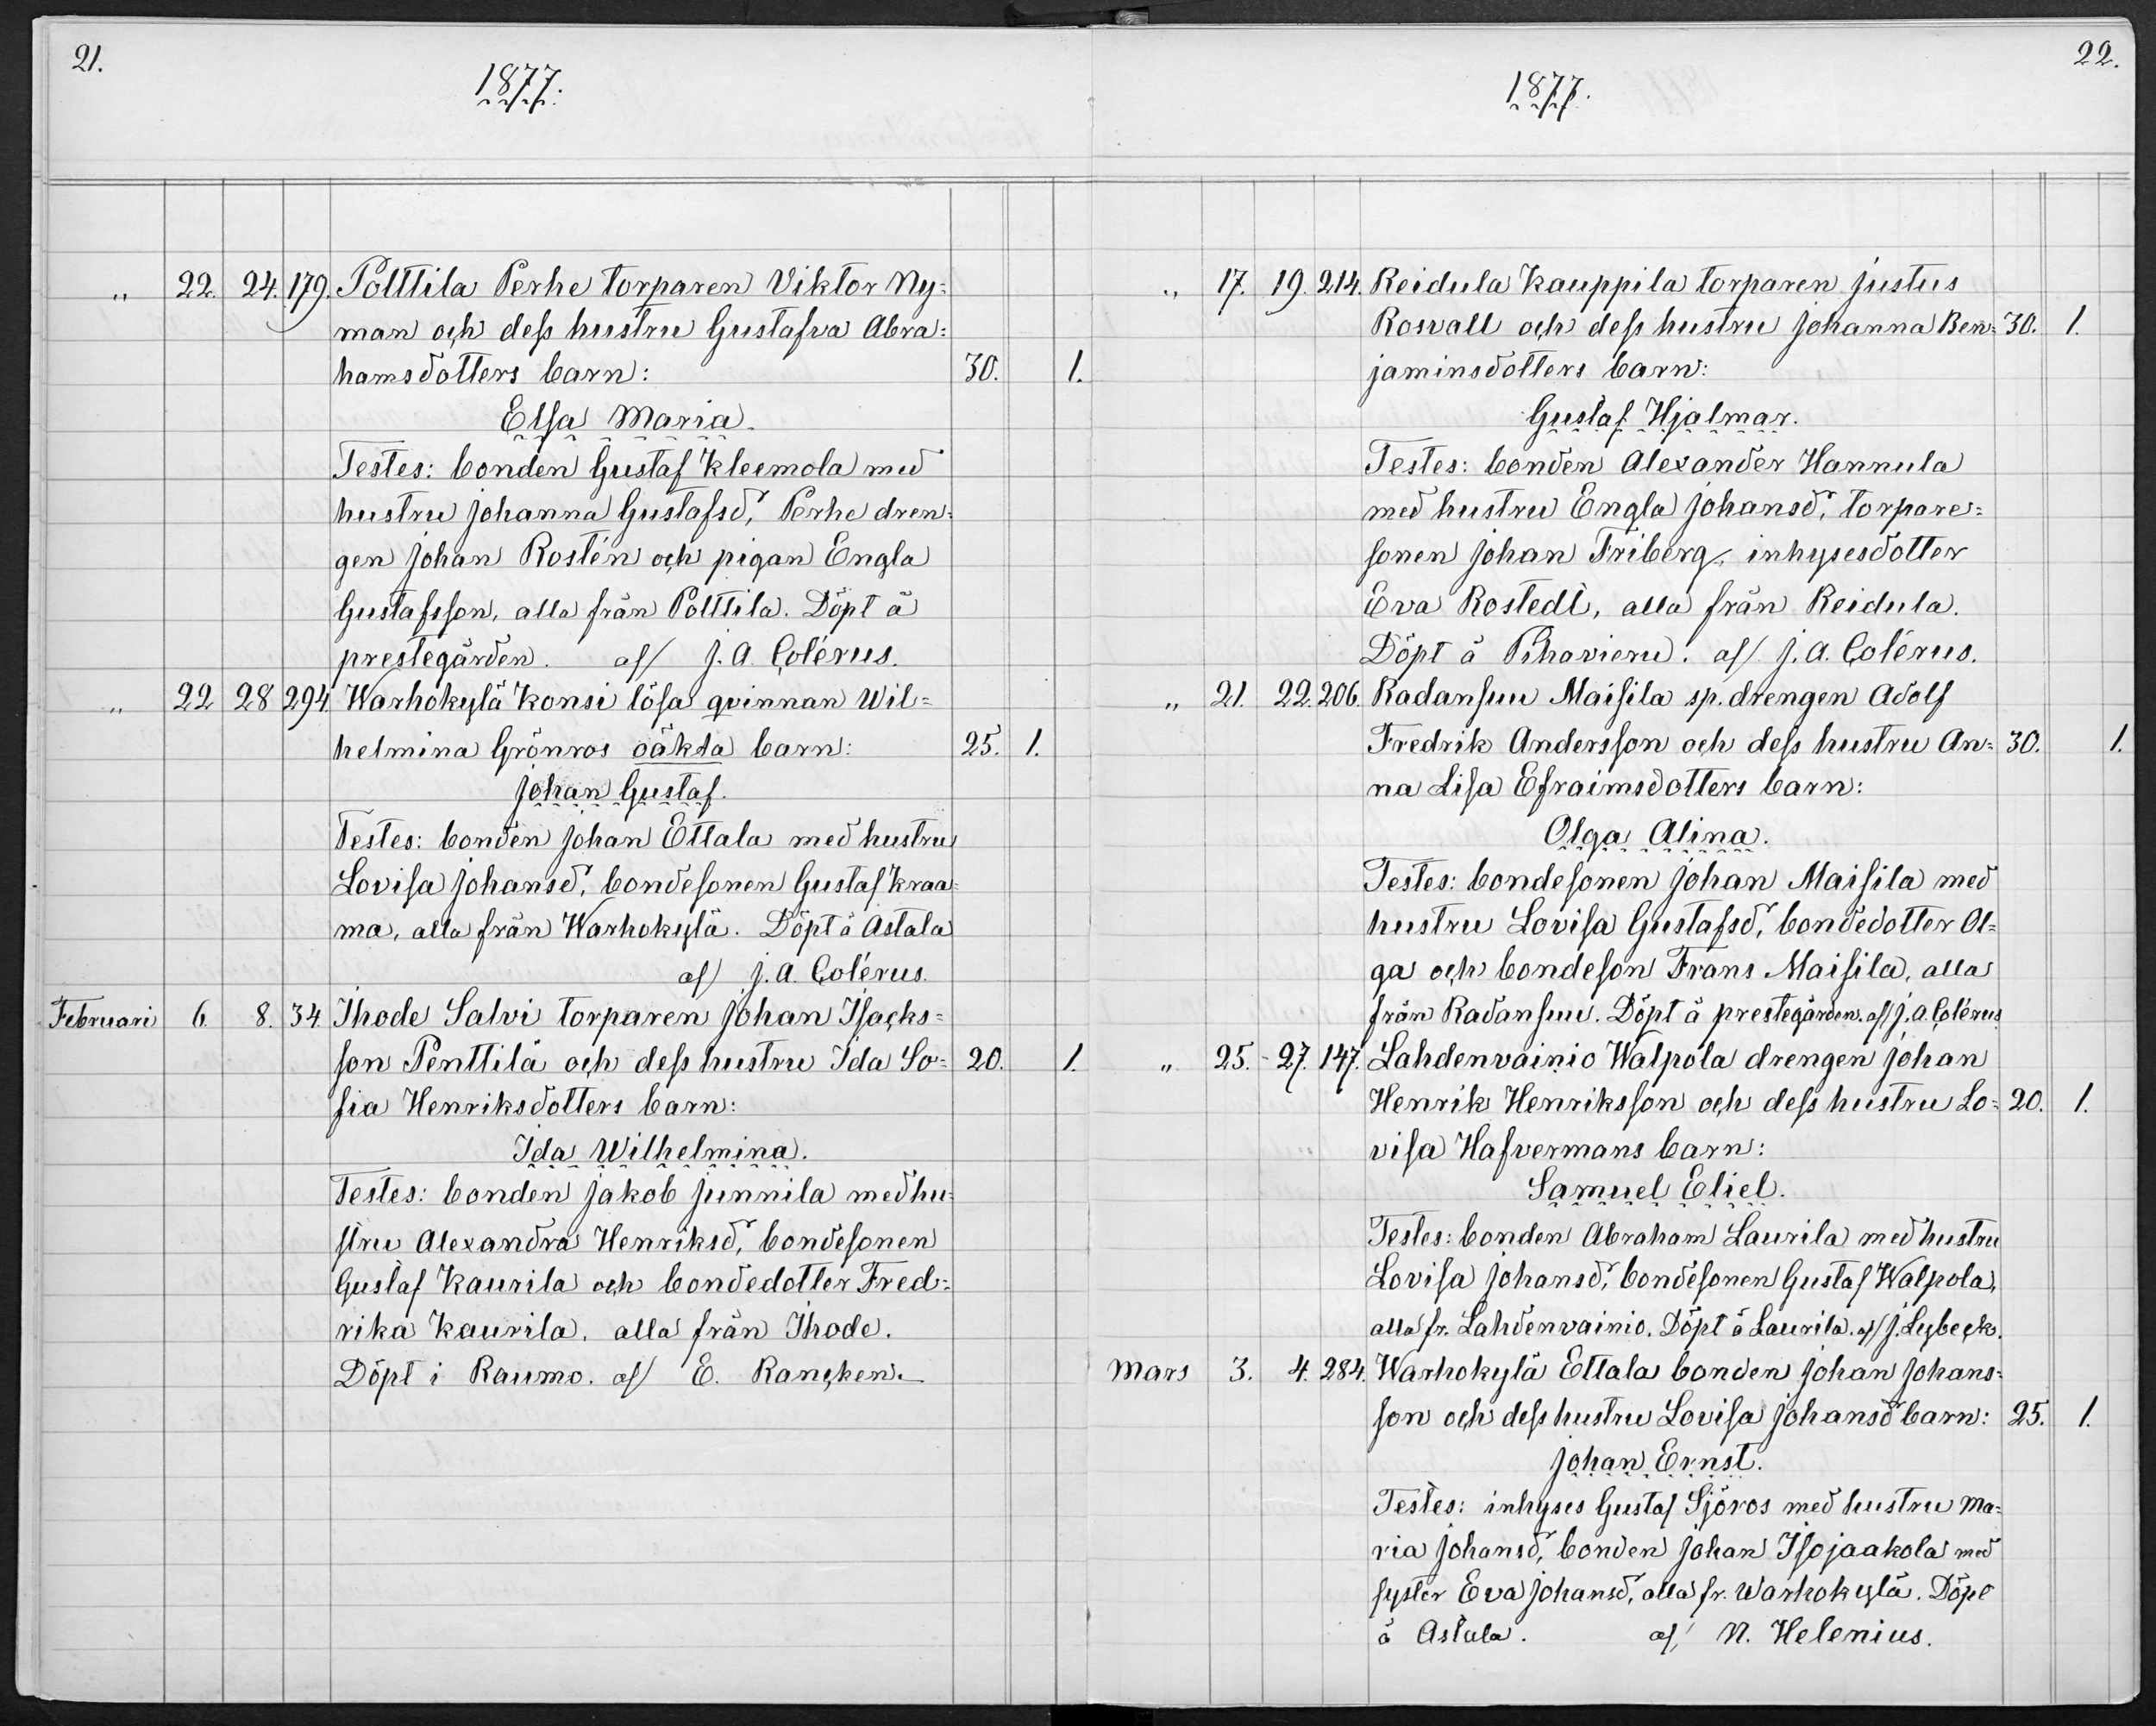 21.
1877.
„ 22. 24. 179. Polttila Perhe torparen Viktor Ny=
man och dess hustru Gustafva Abra=
hamsdotters barn: 30. 1.
Elsa Maria.
Testes: bonden Gustaf Kleemola med
hustru Johanna Gustafsd, Perhe dren=
gen Johan Rostén och pigan Engla
Gustafsson, alla från Polttila. Döpt å
prestegården. af/ J. A. Colérus.
„ 22 28 294. Warhokylä Konsi lösa qvinnan Wil=
helmina Grönros oäkta barn: 25. 1.
Johan Gustaf.
Testes: bonden Johan Ettala med hustru
Lovisa Johansd, bondesonen Gustaf Kraa=
ma, alla från Warhokylä. Döpt å Astala
af/ J. A. Colérus.
Februari 6. 8. 34. Ihode Salvi torparen Johan Isacks=
son Penttilä och dess hustru Ida So= 20. 1.
fia Henriksdotters barn:
Ida Wilhelmina.
Testes: bonden Jakob Junnila med hu=
stru Alexandra Henriksd, bondesonen
Gustaf Kaurila och bondedotter Fred=
rika Kaurila, alla från Ihode.
Döpt i Raumo. af/ E. Rancken.
22.
1877.
„ 17. 19. 214. Reidula Kauppila torparen Justus
Rosvall och dess hustru Johanna Ben= 30. 1.
jaminsdotters barn:
Gustaf Hjalmar.
Testes: bonden Alexander Hannula
med hustru Engla Johansd, torpare=
sonen Johan Friberg, inhysesdotter
Eva Rostedt, alla från Reidula.
Döpt å Pihavieru. af/ J. A. Colérus.
„ 21. 22. 206. Radansuu Maisila sp. drengen Adolf
Fredrik Andersson och dess hustru An= 30. 1.
na Lisa Efraimsdotters barn:
Olga Alina.
Testes: bondesonen Johan Maisila med
hustru Lovisa Gustafsd, bondedotter Ol=
ga och bondeson Frans Maisila, alla
från Radansuu. Döpt å prestegården. af/ J. A. Colérus
„ 25. 27. 147. Lahdenvainio Walpola drengen Johan
Henrik Henriksson och dess hustru Lo= 20. 1.
visa Hafvermans barn:
Samuel Eliel.
Testes: bonden Abraham Laurila med hustru
Lovisa Johansd, bondesonen Gustaf Walpola,
alla fr. Lahdenvainio. Döpt å Laurila. af/ J. Lybeck.
Mars 3. 4. 284. Warhokylä Ettala bonden Johan Johans=
son och dess hustru Lovisa Johansd barn: 25. 1.
Johan Ernst.
Testes: inhyses Gustaf Sjöros med hustru Ma=
ria Johansd, bonden Johan Isojaakola med
syster Eva Johansd, alla fr. Warhokylä. Döpt
å Astala. af/ N. Helenius.